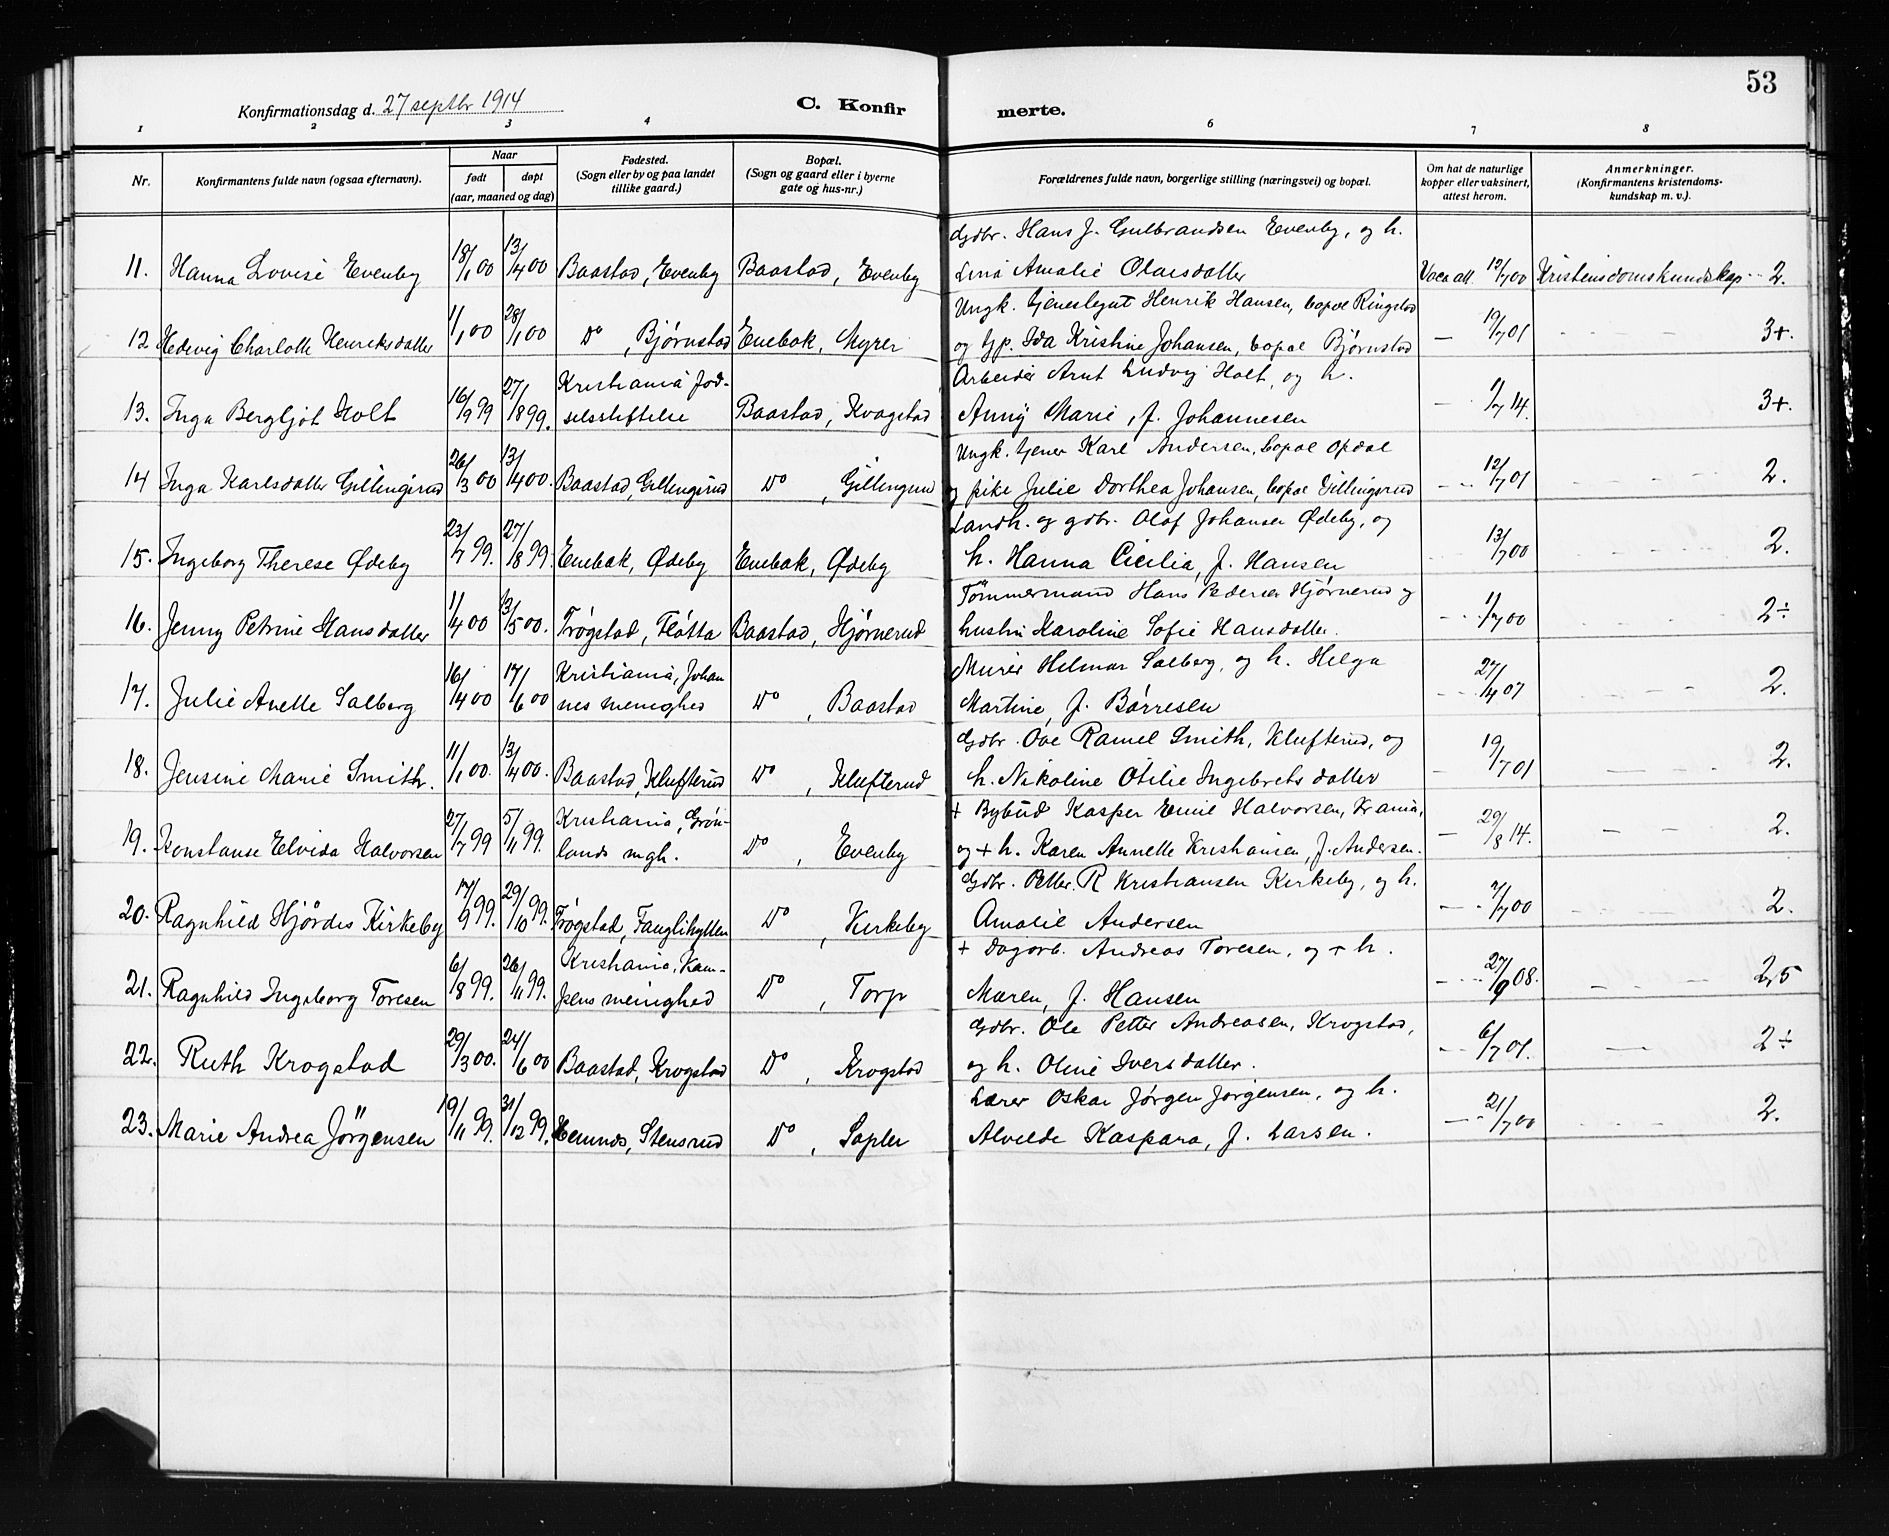 53
Konfirmationsdag d. 27 septbr 1914
C. Konfir merte.
1 2 3 4 6 7 8
Nr. Konfirmantens fulde navn (ogsaa efternavn). Naar født døpt (aar, maaned og dag) Fødested. (Sogn eller by og paa landet tillike gaard.) Bopæl. (Sogn og gaard eller i byerne gate og hus-nr.) Forældrenes fulde navn, borgerlige stilling (næringsvei) og bopæl. Om hat de naturlige kopper eller vaksinert, attest herom. Anmerkninger. (Konfirmantens kristendomskundskap m. v.).
Gdbr. Hans J. Gulbrandsen Evenby, og h.
11. Hanna Lovise Evenby 18/1 00 13/4 00 Baastad, Evenby Baastad, Evenby Lina Amalie Olausdatter Vacc att. 12/7 00 Kristendomskundskap 2.
Ungk. tjenestegut Henrik Hansen, bopæl Ringstad
12 Hedevig Charlotte Henriksdatter 1/1 00 28/1 00 Do, Bjørnstad Enebak, Myrer og tjp. Ida Kristine Johansen, bopæl Bjørnstad — 19/7 01 3+.
Kristiania Fød- Arbeider Arnt Ludvig Holt, og h.
13. Inga Bergljot Holt 16/9 99 27/1 99. selsstiftelse Baastad, Kragstad Anny Marie, f. Johannesen — 1/7 14. 3+.
Ungk. tjener Karl Andersen, bopæl Opdal
14 Inga Karlsdatter Gillingsrud 26/3 00 13/4 00. Baastad, Gillingsrud Do, Gillingsrud og pike Julie Dorthea Johansen, bopæl Gillingsrud 12/7 01 2.
Landh. og gdbr. Olaf Johansen Ødeby, og
15. Ingeborg Therese Ødeby 23/7 99. 27/8 99. Enebak, Ødeby Enebak, Ødeby h. Hanna Cicilia, f. Hansen 13/7 00 2.
Tømmermand Hans Pedersen Hjørnerud og
16. Jenny Petrine Hansdatter 1/4 00 13/5 00. Trøgstad, Flatta Baastad, Hjørnerud hustru Karoline Sofie Hansdatter. 11/7 00 2÷
Kristiania, Johan Murer Hilmar Salberg, og h. Helga
17. Julie Anette Salberg 16/4 00 17/6 00 nes menighed Do, Baastad Martine, f. Børresen 27/4 07 2.
Gdbr. Ove Ramel Smith, Klufterud, og
18. Jensine Marie Smith. 11/1 00. 13/4 00. Baastad, Klufterud Do, Klufterud h. Nikoline Otilie Ingebrets datter — 19/7 01 2.
Kristiania, Grøn- + Bybud Kasper Emil Halvorsen, Kr.ania,
19. Konstanse Elvida Halvorsen 27/7 99 5/11 99. lands mgh. Do, Evenby og + h. Karen Annette Kristiansen, f. Andersen. — 29/8 14. 2.
Gdbr. Petter R Kristiansen Kirkeby, og h.
20. Ragnhild Hjørdis Kirkeby 17/9 99. 29/10 99. Trøgstad, Fuglihytten Do, Kirkeby Amalie Andersen 7/7 00 2.
Kristiania, Kam- + Dagarb. Andreas Toresen, og + h.
21. Ragnhild Ingeborg Toresen 6/8 99. 26/11 99. pens menighed Do, Torp Maren, f. Hansen 27/9 08. 2,5
Gdbr. Ole Petter Andreasen, Krogstad,
22. Ruth Krogstad 29/3 00. 24/6 00 Baastad, Krogstad Do, Krogstad og h. Oline Iversdatter. 6/7 01. 2÷
Lærer Oskar Jørgen Jørgensen, og h.
23. Marie Andrea Jørgensen 19/11 99. 31/12 99. Hemnes, Stensrud Do, Sopler Alvilde Kaspara, f. Larsen. 21/7 00 2.